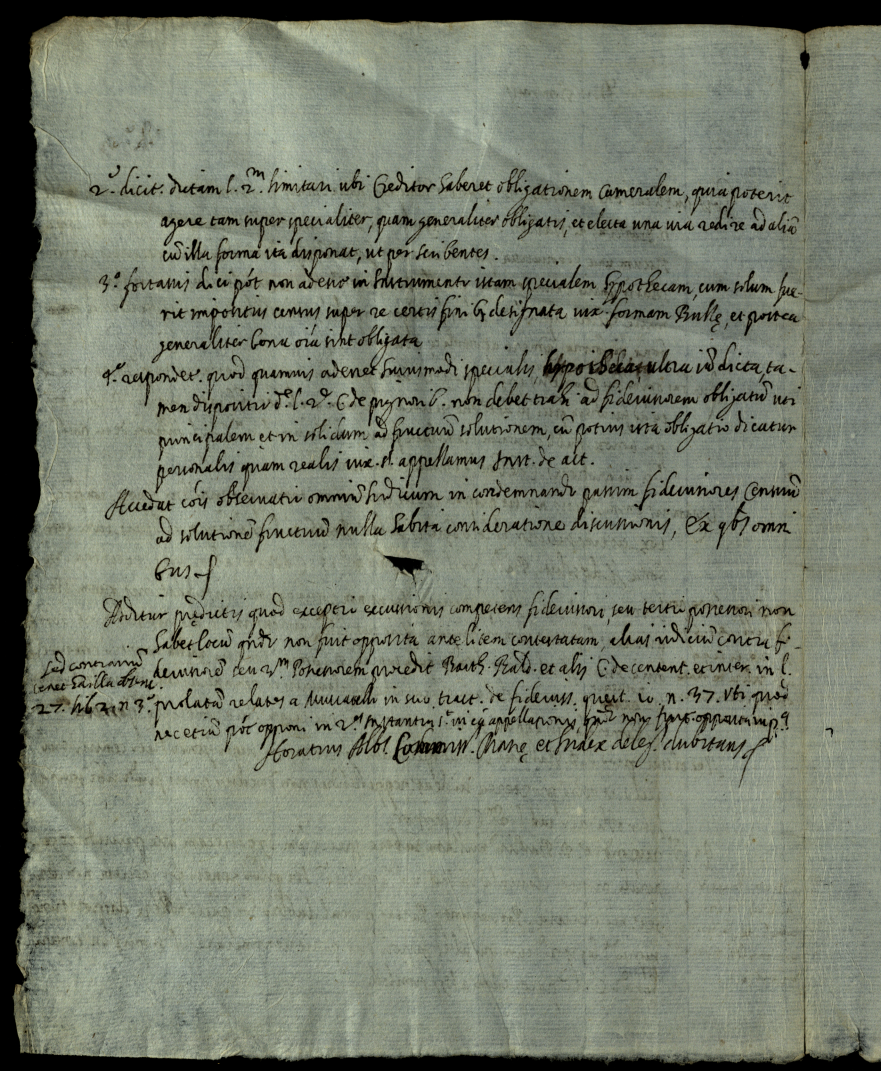 2.º dicit. dictam l. 2.m limitari ubi Creditor haberet obligationem Cameralem, quia poterit
agere tam super specialiter, quam generaliter obligatis, et electa una via redire ad aliã
cũ illa forma ita disponat, ut per scribentes.
3.º fortassis dici põt non adesse in Instrumento istam specialem hypothecam, cum solum fue-
rit impositus census super re certis finib; designata iux.ª formam Bullę, et postea
generaliter bona oĩa sint obligata
4.º respondet. quod quamvis adesset huiusmodi specialis hypotheca, ultra iã dicta, ta-
men dispositio d.ę l. 2.ę C. de pignorib. non debet trahi ad fideiussorem obligatũ uti
principalem et in solidum ad fructuũ solutionem, cũ potius ista obligatio dicatur
personalis quam realis iux. §. appellamus Inst. de act.
Accedat cõis observantia omniũ Iudicum in condemnando passim fideiussores Censuũ
ad solutionẽ fructuũ nulla habita consideratione discussionis, Ex qbs omni
bus
Additur prędictis quod exceptio excussionis competens fideiussori, seu tertio possessori non
habet locũ qñdo non fuit opposita ante litem contestatam, alias iudiciũ contra fi-
deiussorẽ seu 3.m Possessorem procedit Barth. Bald. et alij C. de content. et inter. in l.
prolatam relates a in suo tract. de fideiuss. quest. 10. n. 37. Uti quod
nec etiũ põt opponi in 2.ª Instantia s.ª in ca appellationis non fuit opposita in p.ª
Sed contrariũ
tenet
27. lib. 2. n. 3.º
Horatius Abb. Commiss. et Iudex deleg. dubitans